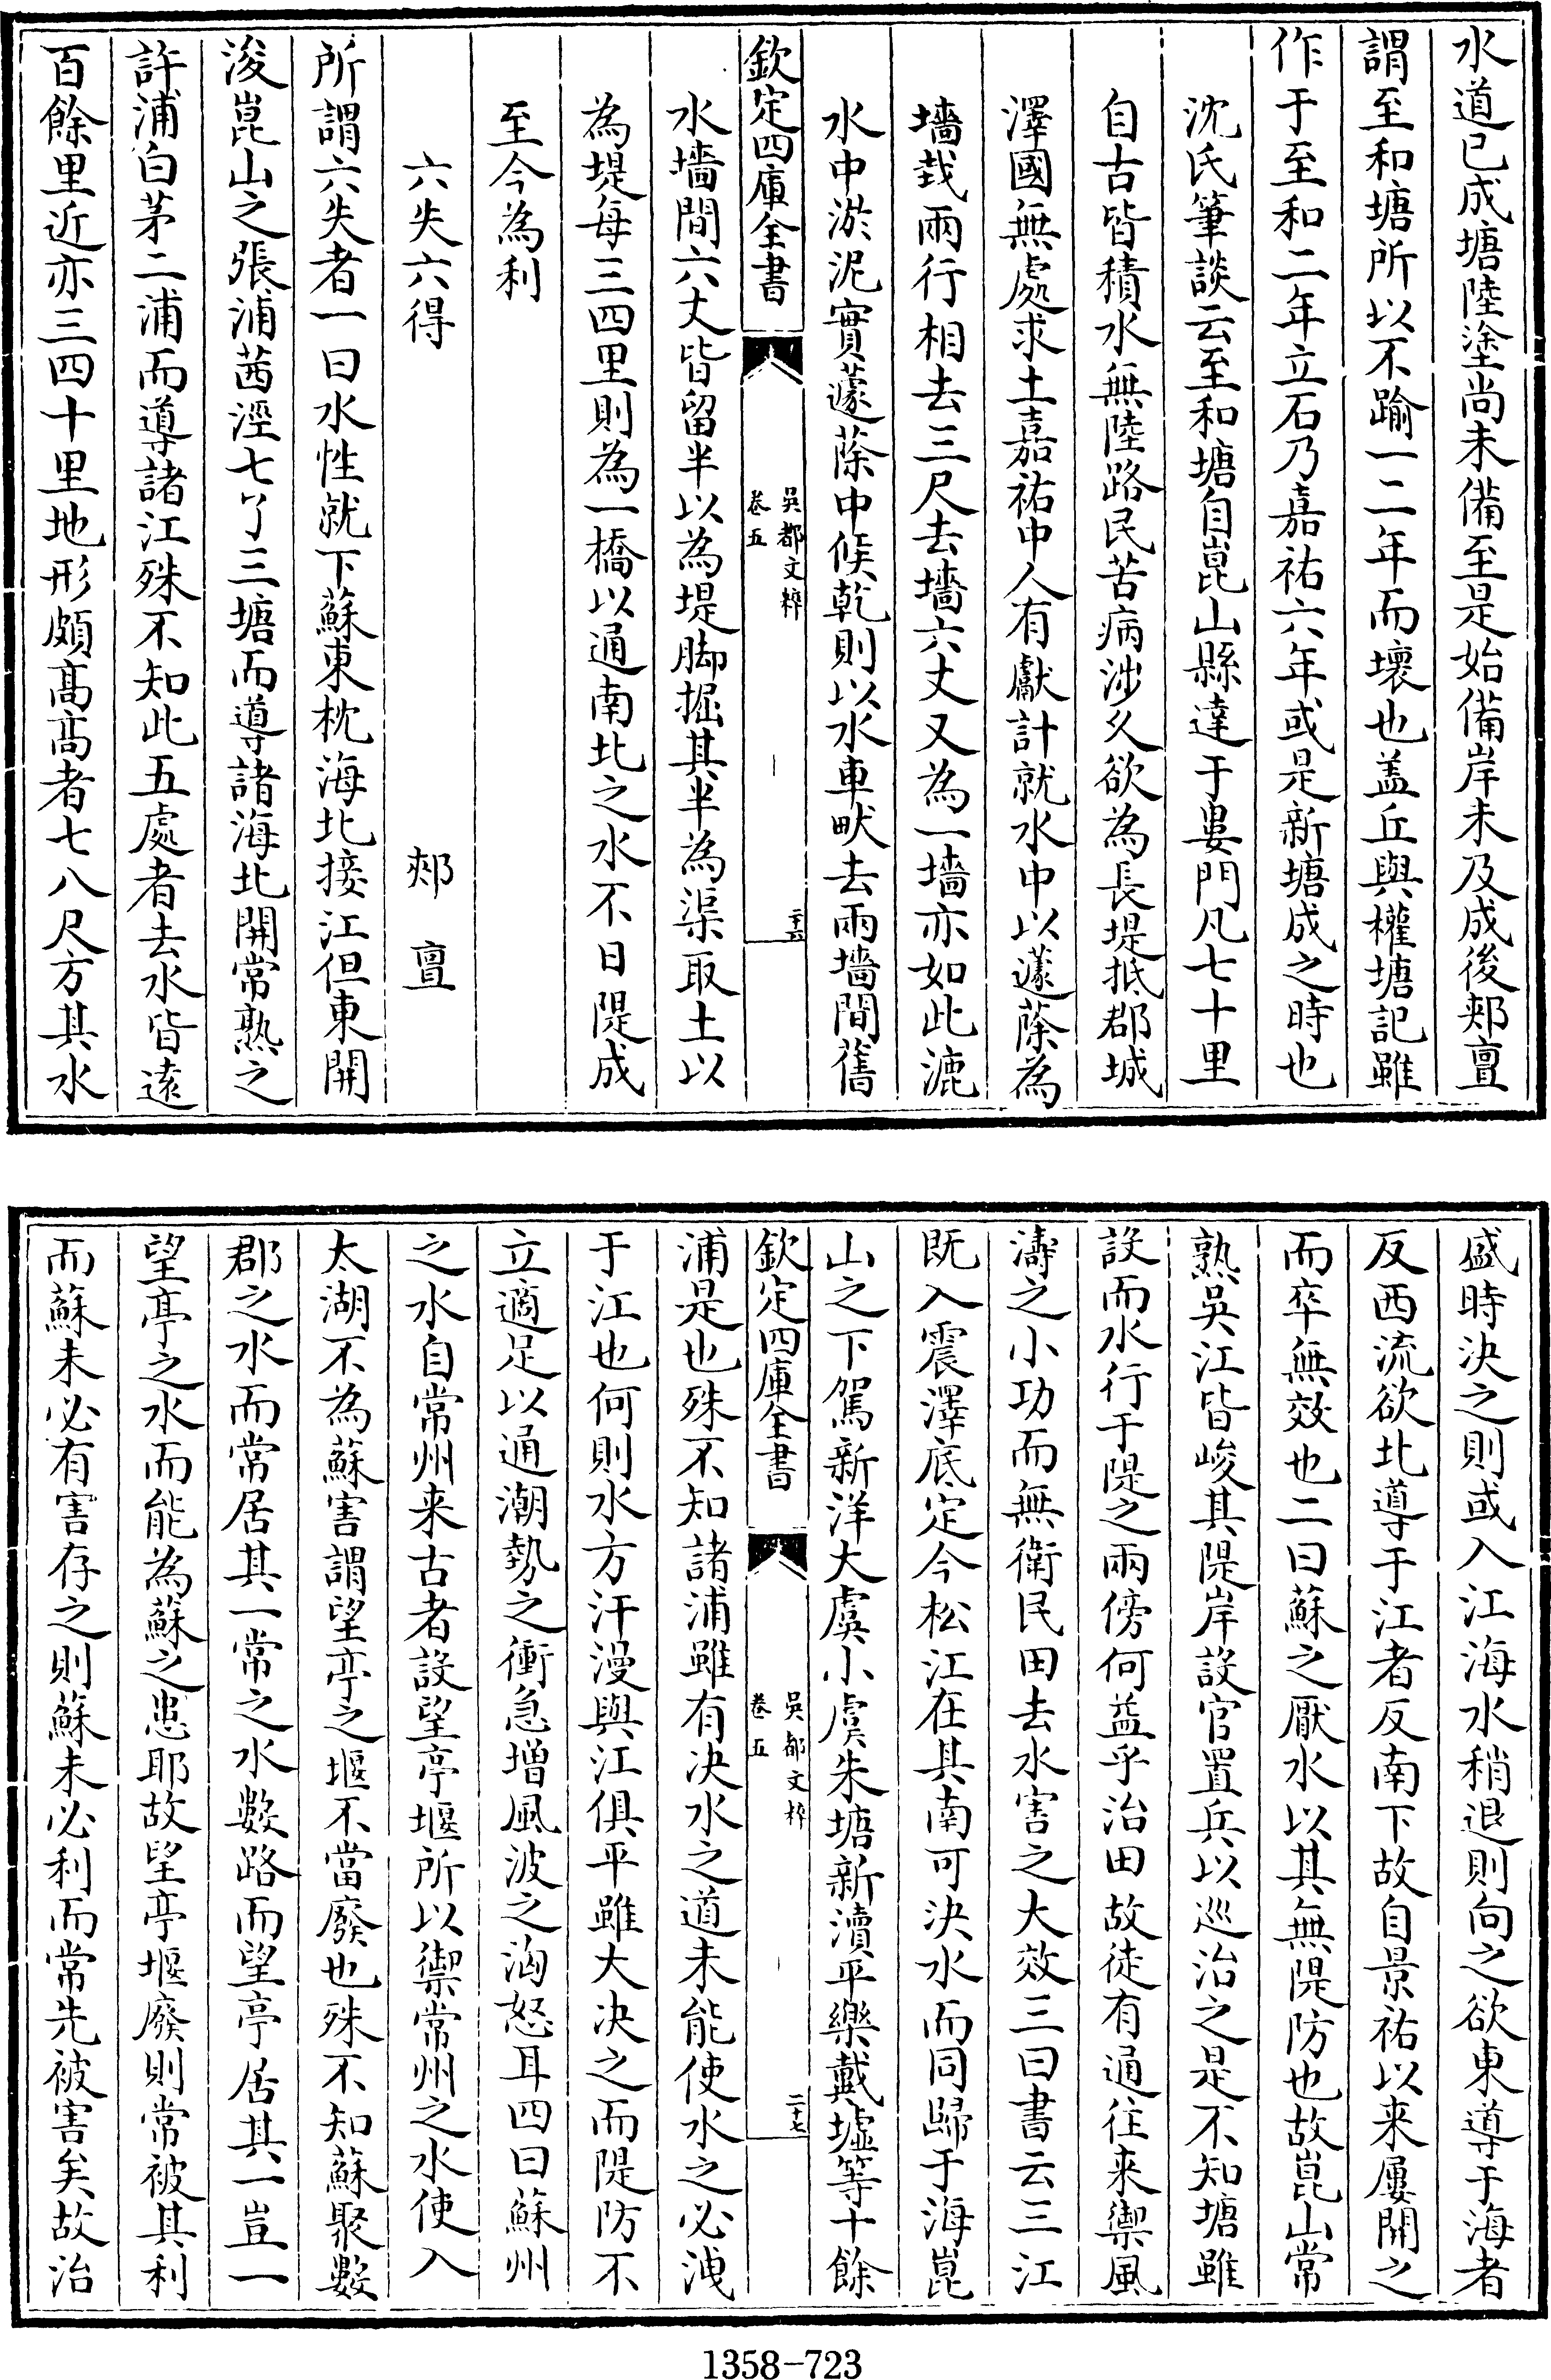 水道已成塘陸塗尚未備至是始備岸未及成後郟亶
謂至和塘所以不踰一二年而壞也盖丘與權塘記雖
作于至和二年立石乃嘉祐六年或是新塘成之時也
沈氏筆談云至和塘自崑山縣達于婁門凡七十里
自古皆積水無陸路民苦病涉久欲為長堤抵郡城
澤國無處求土嘉祐中人有獻計就水中以蘧蒢為
墻栽兩行相去三尺去墻六丈又為一墻亦如此漉
水中淤泥實蘧蒢中候乾則以水車畎去兩墻間舊
欽定四庫全書
吳都文粹
卷五
二十六
水墻間六丈皆留半以為堤脚掘其半為渠取土以
為堤每三四里則為一橋以通南北之水不日隄成
至今為利
六失六得
郟亶
所謂六失者一曰水性就下蘇東枕海北接江但東開
浚崑山之張浦茜涇七丫三塘而導諸海北開常熟之
許浦白茅二浦而導諸江殊不知此五處者去水皆遠
百餘里近亦三四十里地形頗髙髙者七八尺方其水
盛時決之則或入江海水稍退則向之欲東導于海者
反西流欲北導于江者反南下故自景祐以来屢開之
而卒無效也二曰蘇之厭水以其無隄防也故崑山常
熟吳江皆峻其隄岸設官置兵以巡治之是不知塘雖
設而水行于隄之兩傍何益乎治田故徒有通往来禦風
濤之小功而無衛民田去水害之大效三曰書云三江
既入震澤底定今松江在其南可決水而同歸于海崑
山之下駕新洋大虞小虞朱塘新瀆平樂戴墟等十餘
欽定四庫全書
吳都文粹
卷五
二十七
浦是也殊不知諸浦雖有決水之道未能使水之必洩
于江也何則水方汗漫與江俱平雖大決之而隄防不
立適足以通潮勢之衝急增風波之洶怒耳四曰蘇州
之水自常州来古者設望亭堰所以禦常州之水使入
太湖不為蘇害謂望亭之堰不當廢也殊不知蘇聚數
郡之水而常居其一常之水數路而望亭居其一豈一
望亭之水而能為蘇之患耶故望亭堰廢則常被其利
而蘇未必有害存之則蘇未必利而常先被害矣故治
1358-723